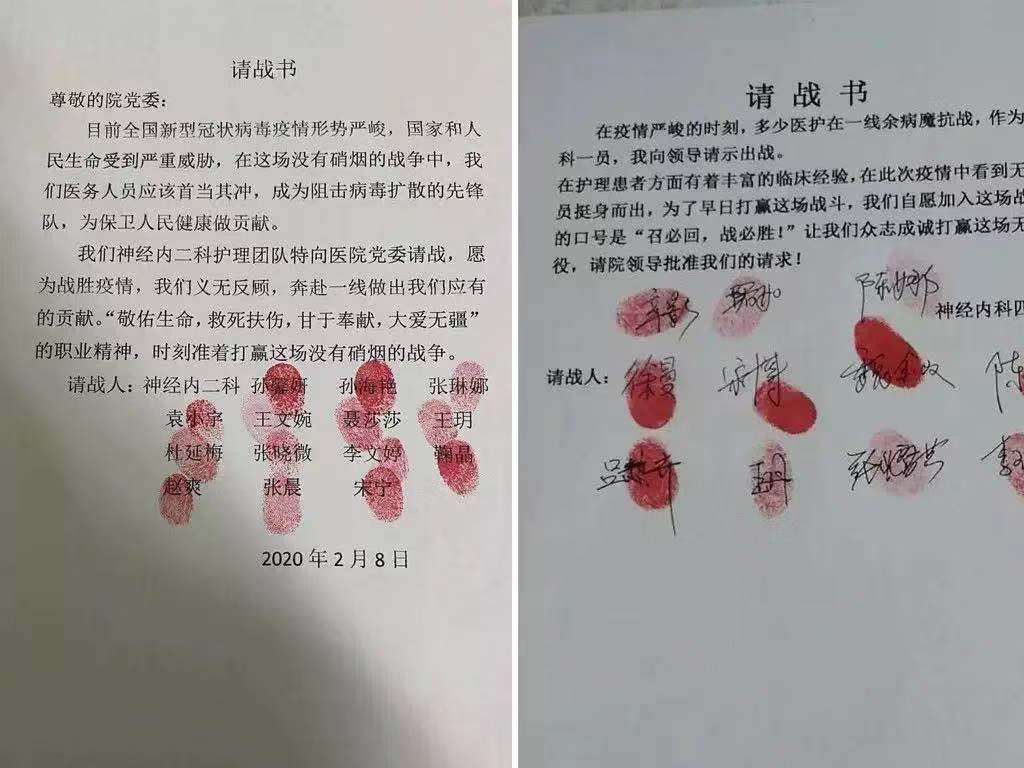 请战书
尊敬的院党委：
目前全国新型冠状病毒疫情形势严峻，国家和人
民生命受到严重威胁，在这场没有硝烟的战争中，我
们医务人员应该首当其冲，成为阻击病毒扩散的先锋
队，为保卫人民健康做贡献。
我们神经内二科护理团队特向医院党委请战，愿
为战胜疫情，我们义无反顾，奔赴一线做出我们应有
的贡献。“敬佑生命，救死扶伤，甘于奉献，大爱无疆”
的职业精神，时刻准着打赢这场没有硝烟的战争。
请战人：神经内二科 孙鑒妍 孙海艳 张琳娜
袁小宇 王文婉 聂莎莎 王玥
杜延梅 张晓微 李文婷 鞠晶
赵爽 张晨 宋宁
2020 年 2 月 8 日
请 战 书
在疫情严峻的时刻，多少医护在一线余病魔抗战，作为
科一员，我向领导请示出战。
在护理患者方面有着丰富的临床经验，在此次疫情中看到无
员挺身而出，为了早日打赢这场战斗，我们自愿加入这场战
的口号是“召必回，战必胜！”让我们众志成诚打赢这场无
役，请院领导批准我们的请求！
神经内科四
请战人： 徐曼
王丹